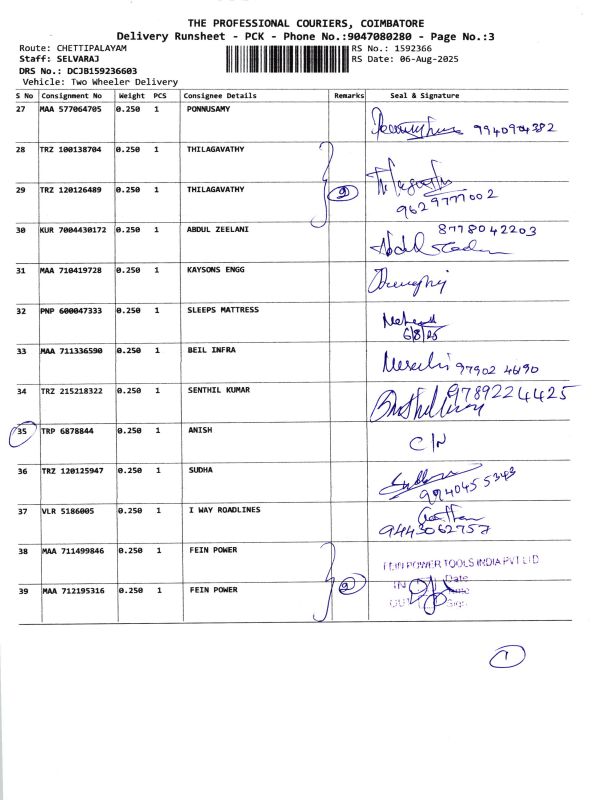 THE PROFESSIONAL COURIERS, COIMBATORE
Delivery Runsheet - PCK - Phone No.:9047080280 - Page No.:3
Route: CHETTIPALAYAM
RS No.: 1592366
Staff: SELVARAJ
RS Date: 06-Aug-2025
DRS No.: DCJB159236603
Vehicle: Two Wheeler Delivery
S No Consignment No Weight PCS Consignee Details Remarks Seal & Signature
27 MAA 577064705 0.250 1 PONNUSAMY
28 TRZ 100138704 0.250 1 THILAGAVATHY
29 TRZ 120126489 0.250 1 THILAGAVATHY 2
9629777002
30 KUR 7004430172 0.250 1 ABDUL ZEELANI 8778042203
Abdul
31 MAA 710419728 0.250 1 KAYSONS ENGG
32 PNP 600047333 0.250 1 SLEEPS MATTRESS
6/8/25
33 MAA 711336590 0.250 1 BEIL INFRA 97902 46190
34 TRZ 215218322 0.250 1 SENTHIL KUMAR 9789224425
35 TRP 6878844 0.250 1 ANISH C/N
36 TRZ 120125947 0.250 1 SUDHA
9940455343
37 VLR 5186005 0.250 1 I WAY ROADLINES
9443062757
38 MAA 711499846 0.250 1 FEIN POWER
FEIN POWER TOOLS INDIA PVT LTD
39 MAA 712195316 0.250 1 FEIN POWER 2
IN Date
OUT Sign
1